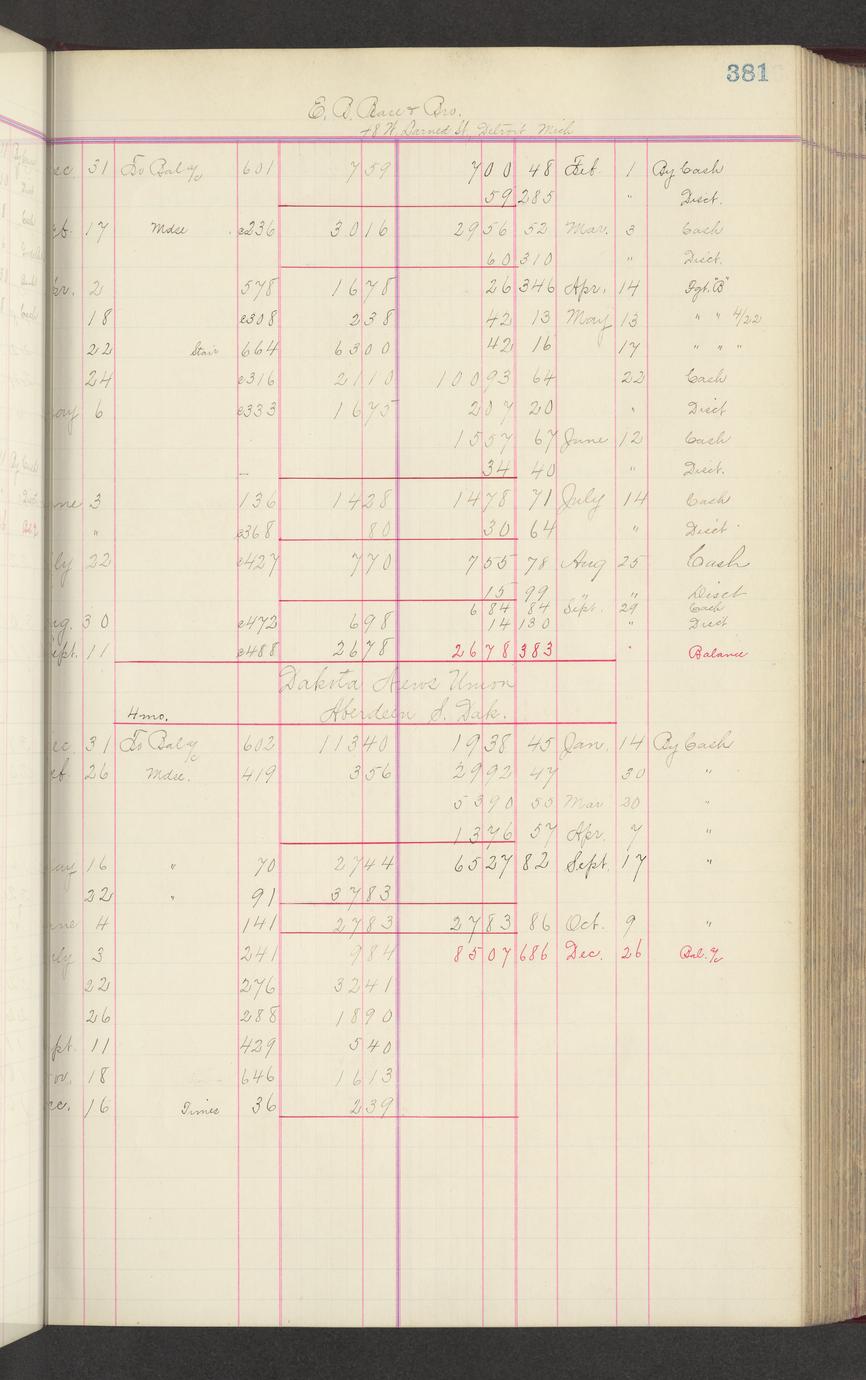 381
E. B. & Bro.
48 W. Larned St, Detroit Mich
ec. 31 To Bal a/c 601 7 59 7 00 48 Feb 1 By Cash
59 285 " Disct.
eb. 17 Mdse e236 30 16 29 56 52 Mar. 3 Cash
60 310 " Disct.
pr. 2 578 16 78 26 346 Apr. 14 Fgt. "B"
18 e308 2 38 42 13 May 13 " " 4/22
22 Stair 664 63 00 42 16 17 " " "
24 e316 21 10 100 93 64 22 Cash
ay 6 e333 16 75 2 07 20 " Disct
15 57 67 June 12 Cash
34 40 " Disct.
ne 3 136 14 28 14 78 71 July 14 Cash
" e368 80 30 64 " Disct
ly 22 e427 7 70 7 55 78 Aug 25 Cash
15 99 " Disct
6 84 84 Sept. 29 Cash
ug. 30 e472 6 98 14 130 " Disct
ept. 11 e488 26 78 26 78 383 " Balance
Dakota News Union
4mo. Aberdeen S. Dak.
ec. 31 To Bal a/c 602 113 40 19 38 45 Jan. 14 By Cash
eb. 26 Mdse. 419 3 56 29 92 47 30 "
53 90 55 Mar 20 "
13 76 57 Apr. 7 "
ay 16 " 70 27 44 65 27 82 Sept. 17 "
22 " 91 37 83
ne 4 141 27 83 27 83 86 Oct. 9 "
ly 3 241 9 84 85 07 686 Dec. 26 Bal. a/c
22 276 32 41
26 288 18 90
pt. 11 429 5 40
ov. 18 646 16 13
ec. 16 Times 36 2 39